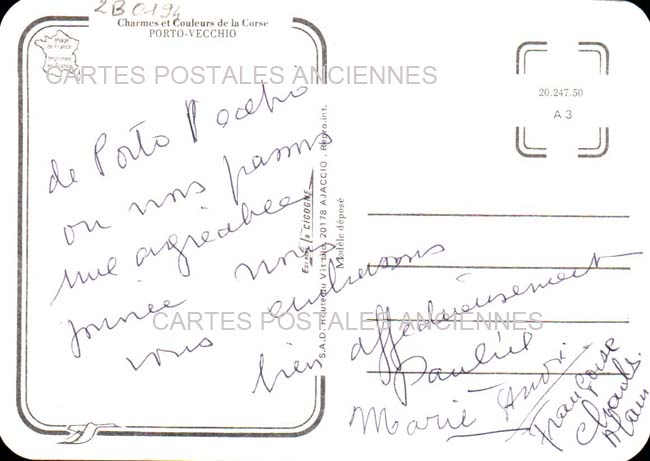 2B 0194
Charmes et Couleurs de la Corse
PORTO-VECCHIO
Image
de France
Imprimée
en France
CARTES POSTALES ANCIENNES
20.247.50
A 3
de Porto Vecchio
ou nous passons
une agréable
journée nous
vous embrassons
bien
affectueusement
Pauline
Marie
Françoise
Alain
Editions la CIGOGNE
S.A.D. Routeau Virtuto 20178 AJACCIO. Repro.int.
Modèle déposé
CARTES POSTALES ANCIENNES